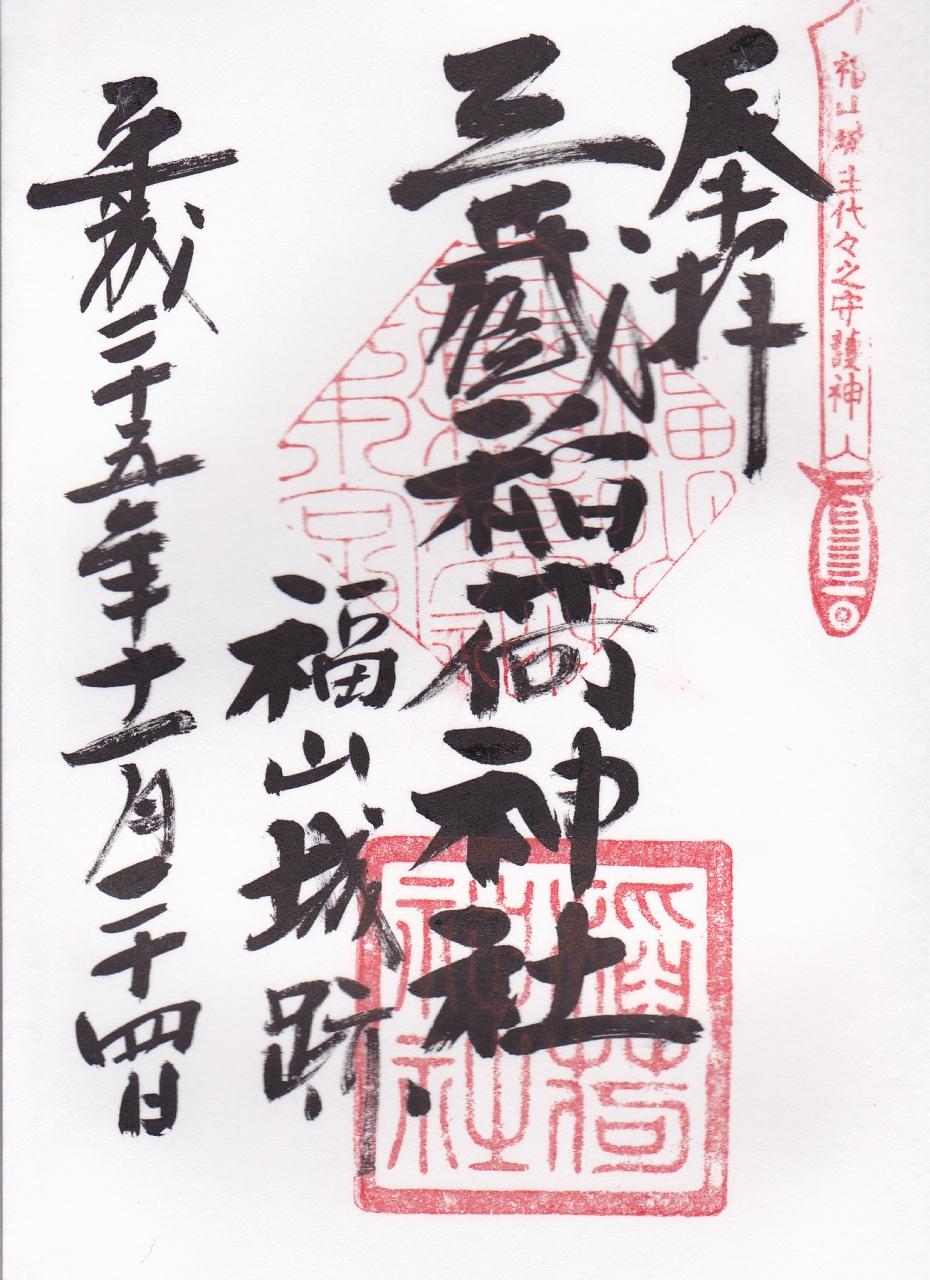 福山城主代々之守護神
奉拝
三蔵稲荷神社
福山城跡
平成二十五年十一月二十四日
稲荷
神社